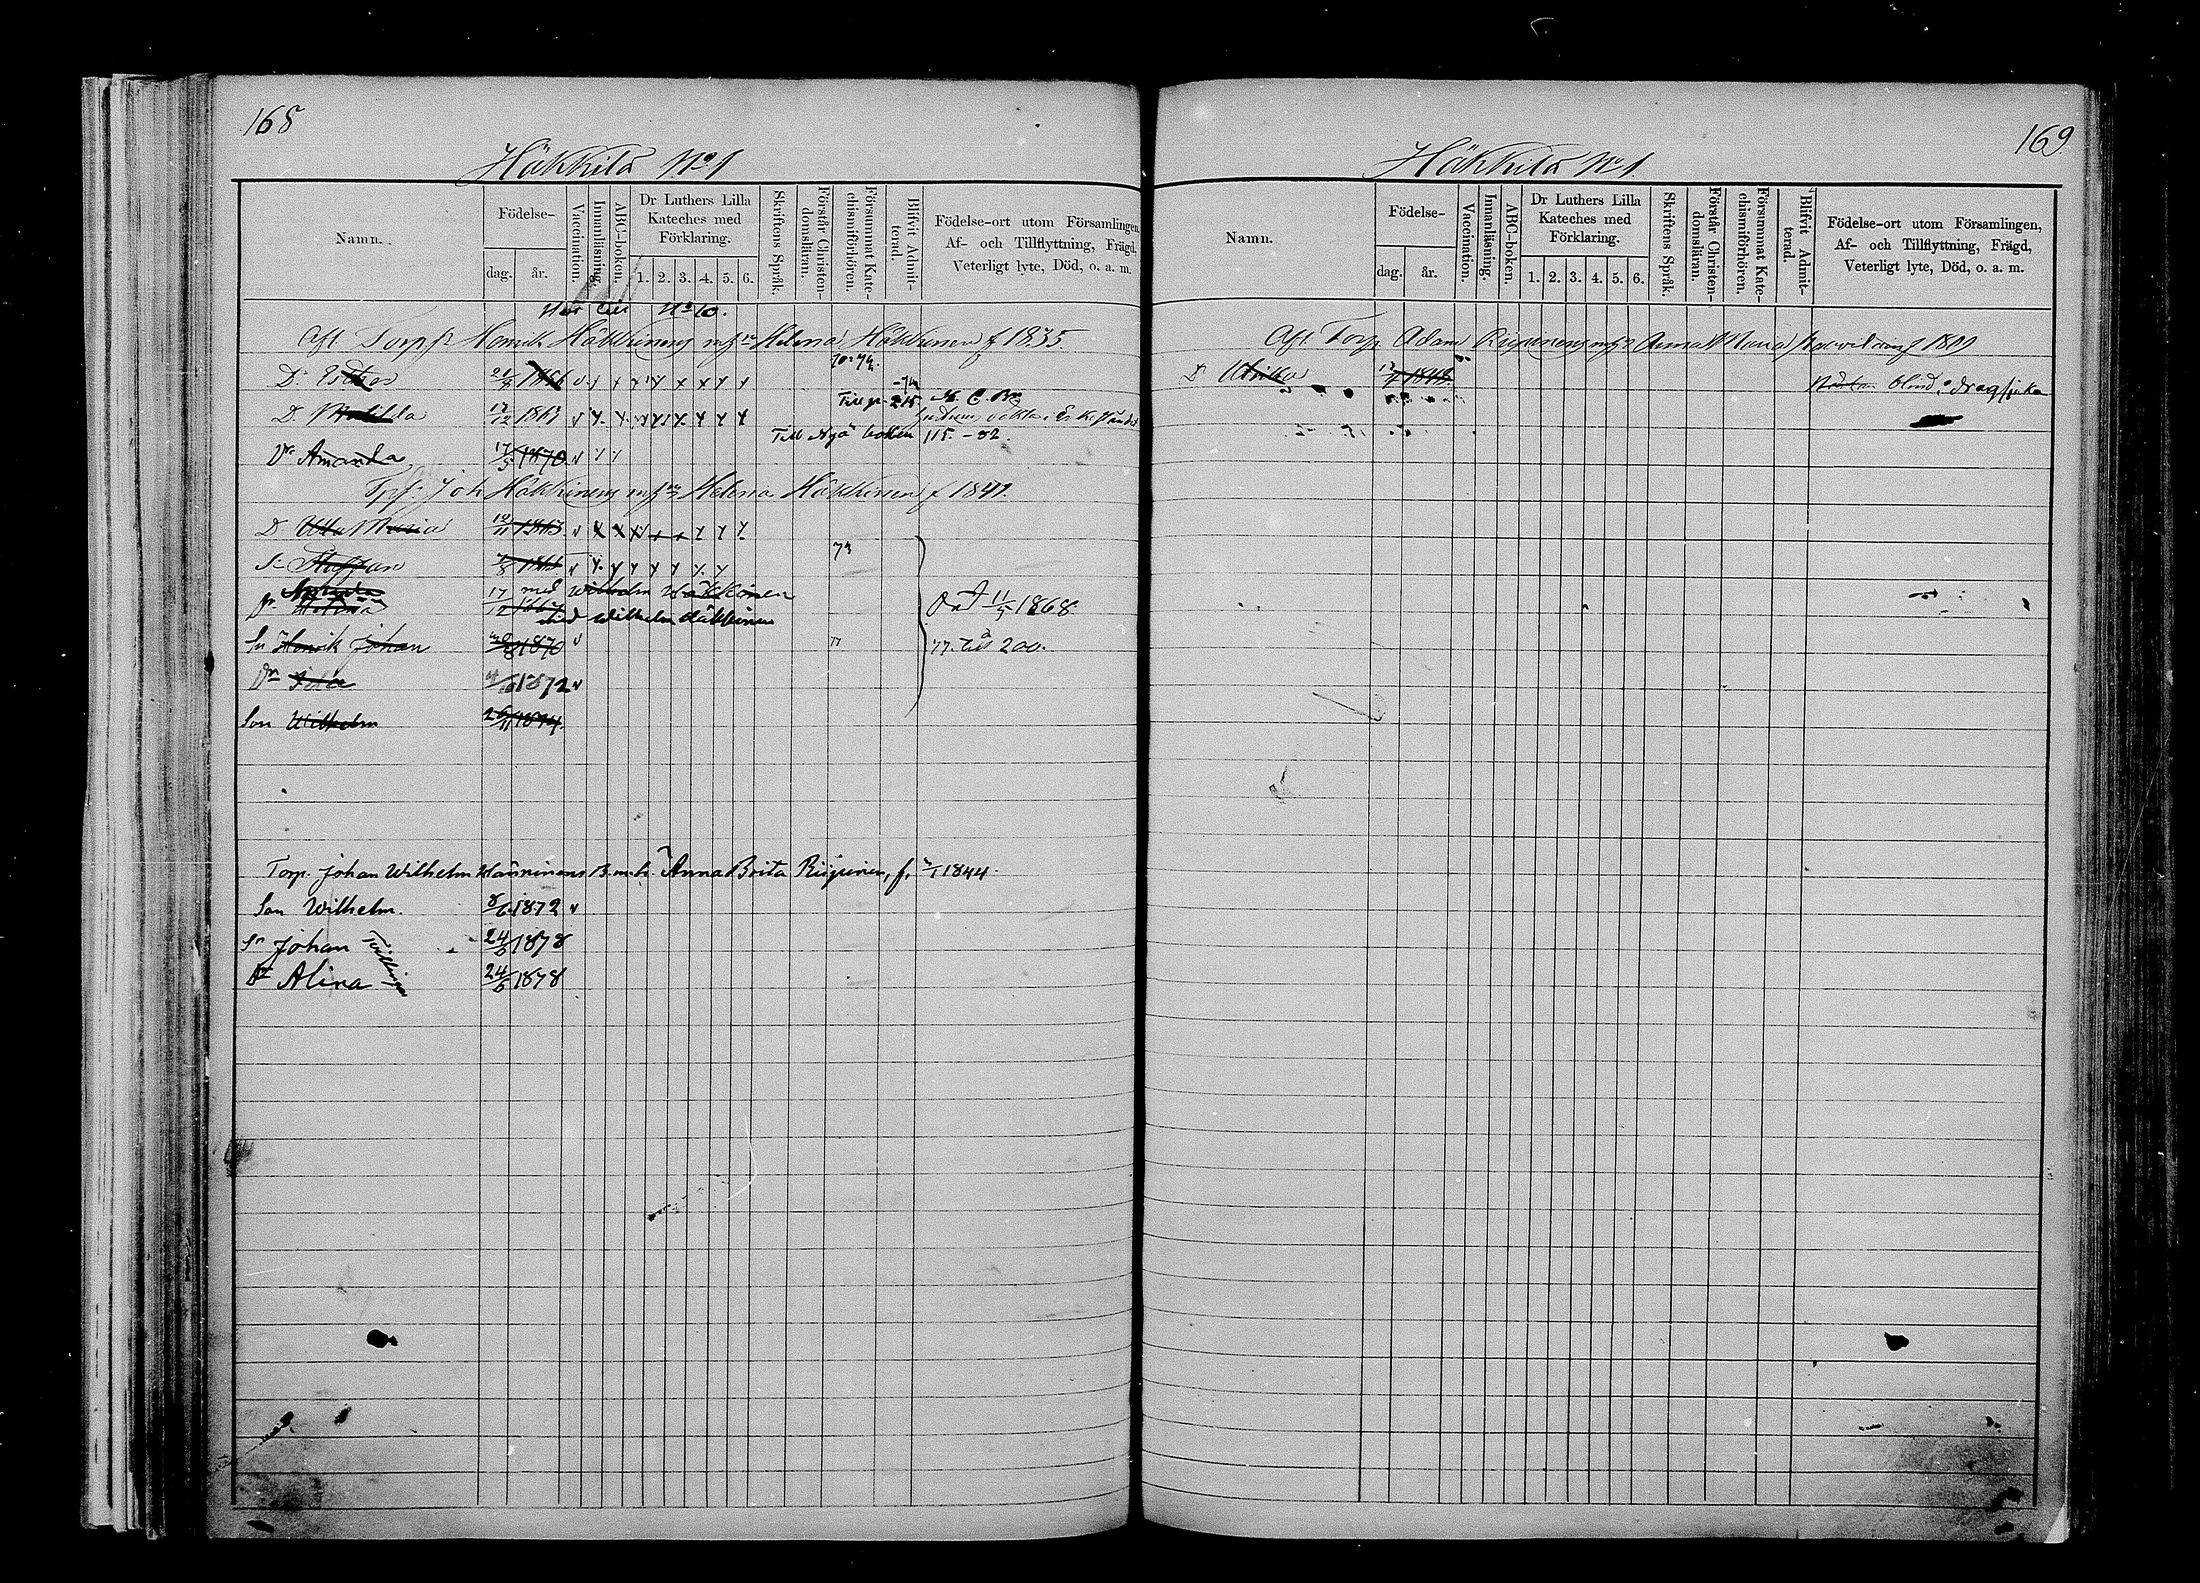 168
Häkkilä No 1
Namn.
Födelse-
dag. år.
Vaccination.
Innanläsning.
ABC-boken.
Dr Luthers Lilla Kateches med Förklaring.
1. 2. 3. 4. 5. 6.
Skriftens Språk.
Förstår Christendomsläran.
Försummat Katechismiförhören.
Blifvit Admitterad.
Födelse-ort utom Församlingen,
Af- och Tillflyttning, Frägd,
Veterligt lyte, Död, o. a. m.
Hör till No 10.
Aft. Torpr Henrik Häkkinens Helena Häkkinen f 1835
Dr Esther 1856
D. Matilda 17/12 1863
Till Nya boken 115.-82.
Dr Amanda 17/5 1870
Joh Häkkinens Helena Häkkinen f 1841
D Ulla Maria 10/11 1863
Sn Staffan 1865 74
Dr Helena 17/12 1867 med Wilhelm Häkkinen
med Wilhelm Häkkinen
Död 11/5 1868
Sn Henrik Johan 1870 77. till 200.
Dr Ida 1872
Son Wilhelm 26/11 1874.
Torp. Johan Wilhelm Hänninens B.m.h. Anna Brita Riipinen, f. 1844.
Son Wilhelm. 8/6 1872
Sn Johan 24/6 1878
Tvillingar
Dr Alina 24/6 1878
169
Häkkilä No 1
Namn.
Födelse-
dag. år.
Vaccination.
Innanläsning.
ABC-boken.
Dr Luthers Lilla Kateches med Förklaring.
1. 2. 3. 4. 5. 6.
Skriftens Språk.
Förstår Christendomsläran.
Försummat Katechismiförhören.
Blifvit Admitterad.
Födelse-ort utom Församlingen,
Af- och Tillflyttning, Frägd,
Veterligt lyte, Död, o. a. m.
Aft. Torp. Adam Riipinens Anna Maria
D Ulrika 1848 blind o. dragsjuka